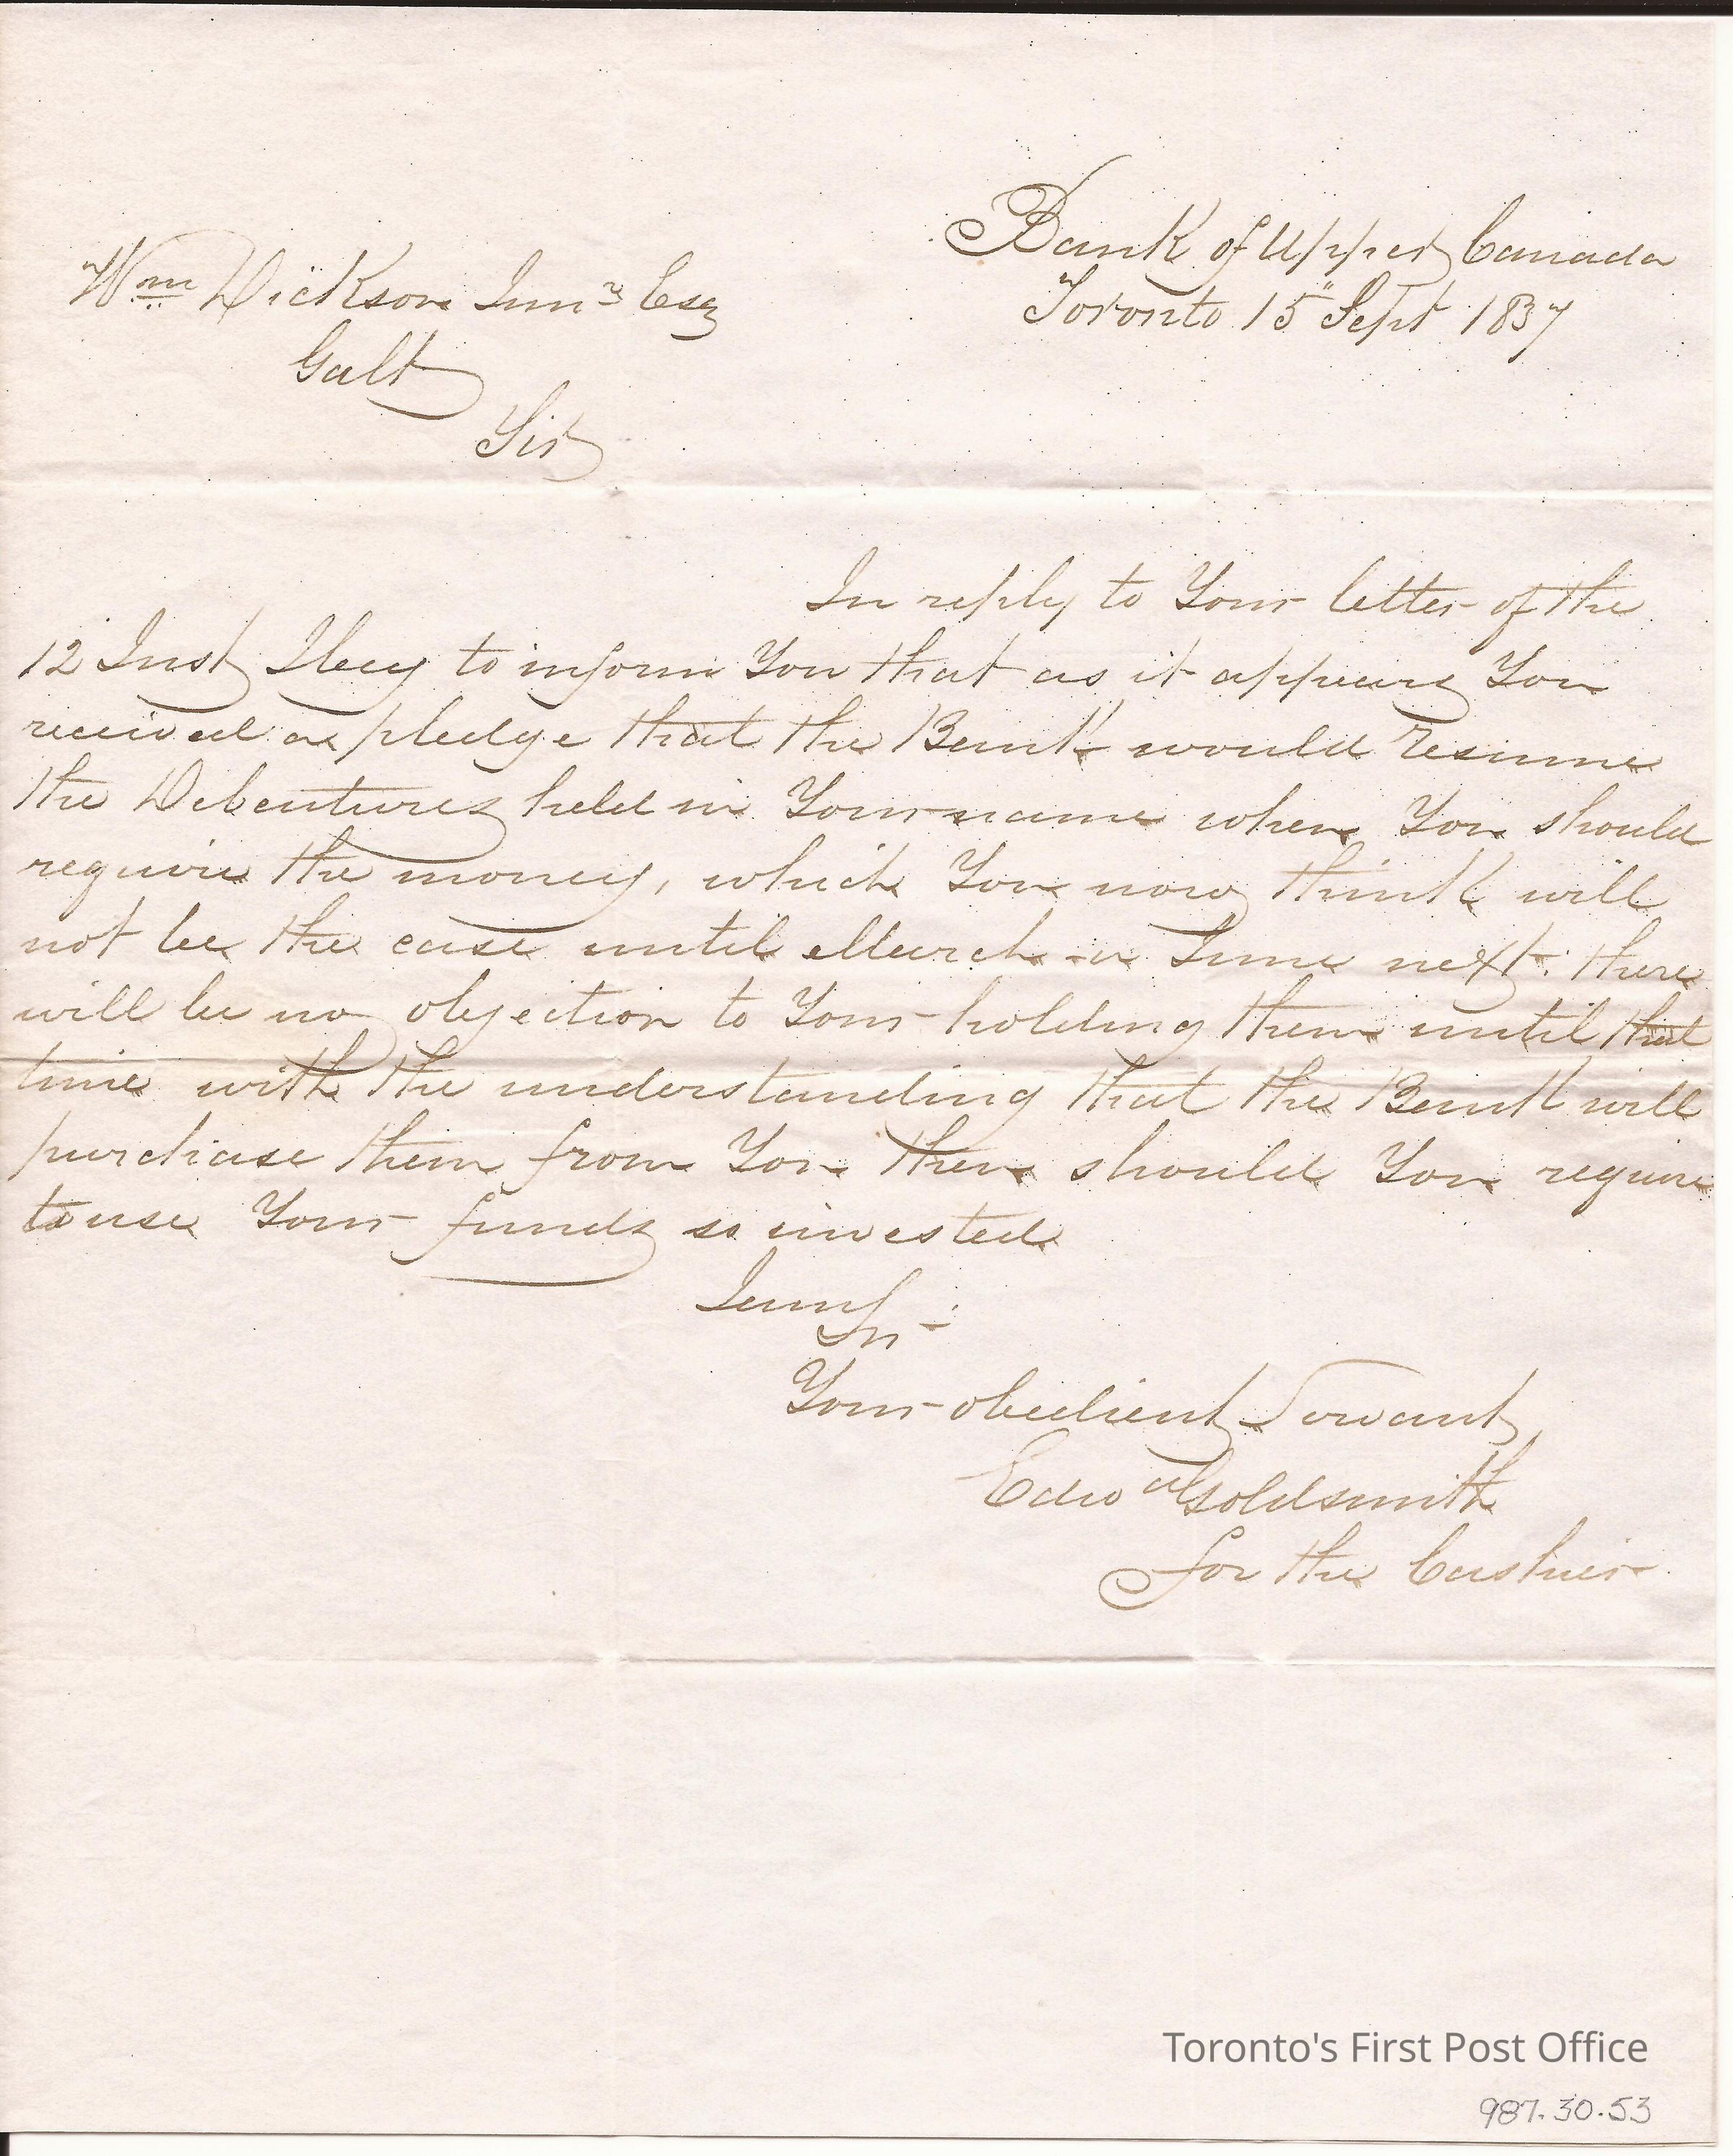 Bank of Upper Canada
Toronto 15" Sept 1837
Wm Dickson Junr Esq
Galt
Sir
In reply to Your letter of the
12 Inst I beg to inform You that as it appears You
received a pledge that the Bank would resume
the Debentures held in Your name when You should
require the money, which You now think will
not be the case until March or June next. there
will be no objection to Your holding them until that
time with the understanding that the Bank will
purchase them from You then should You require
to use Your funds so invested
I am
Sir
Your obedient Servant
Edwd Goldsmith
for the Cashier
Toronto's First Post Office
987.30.53